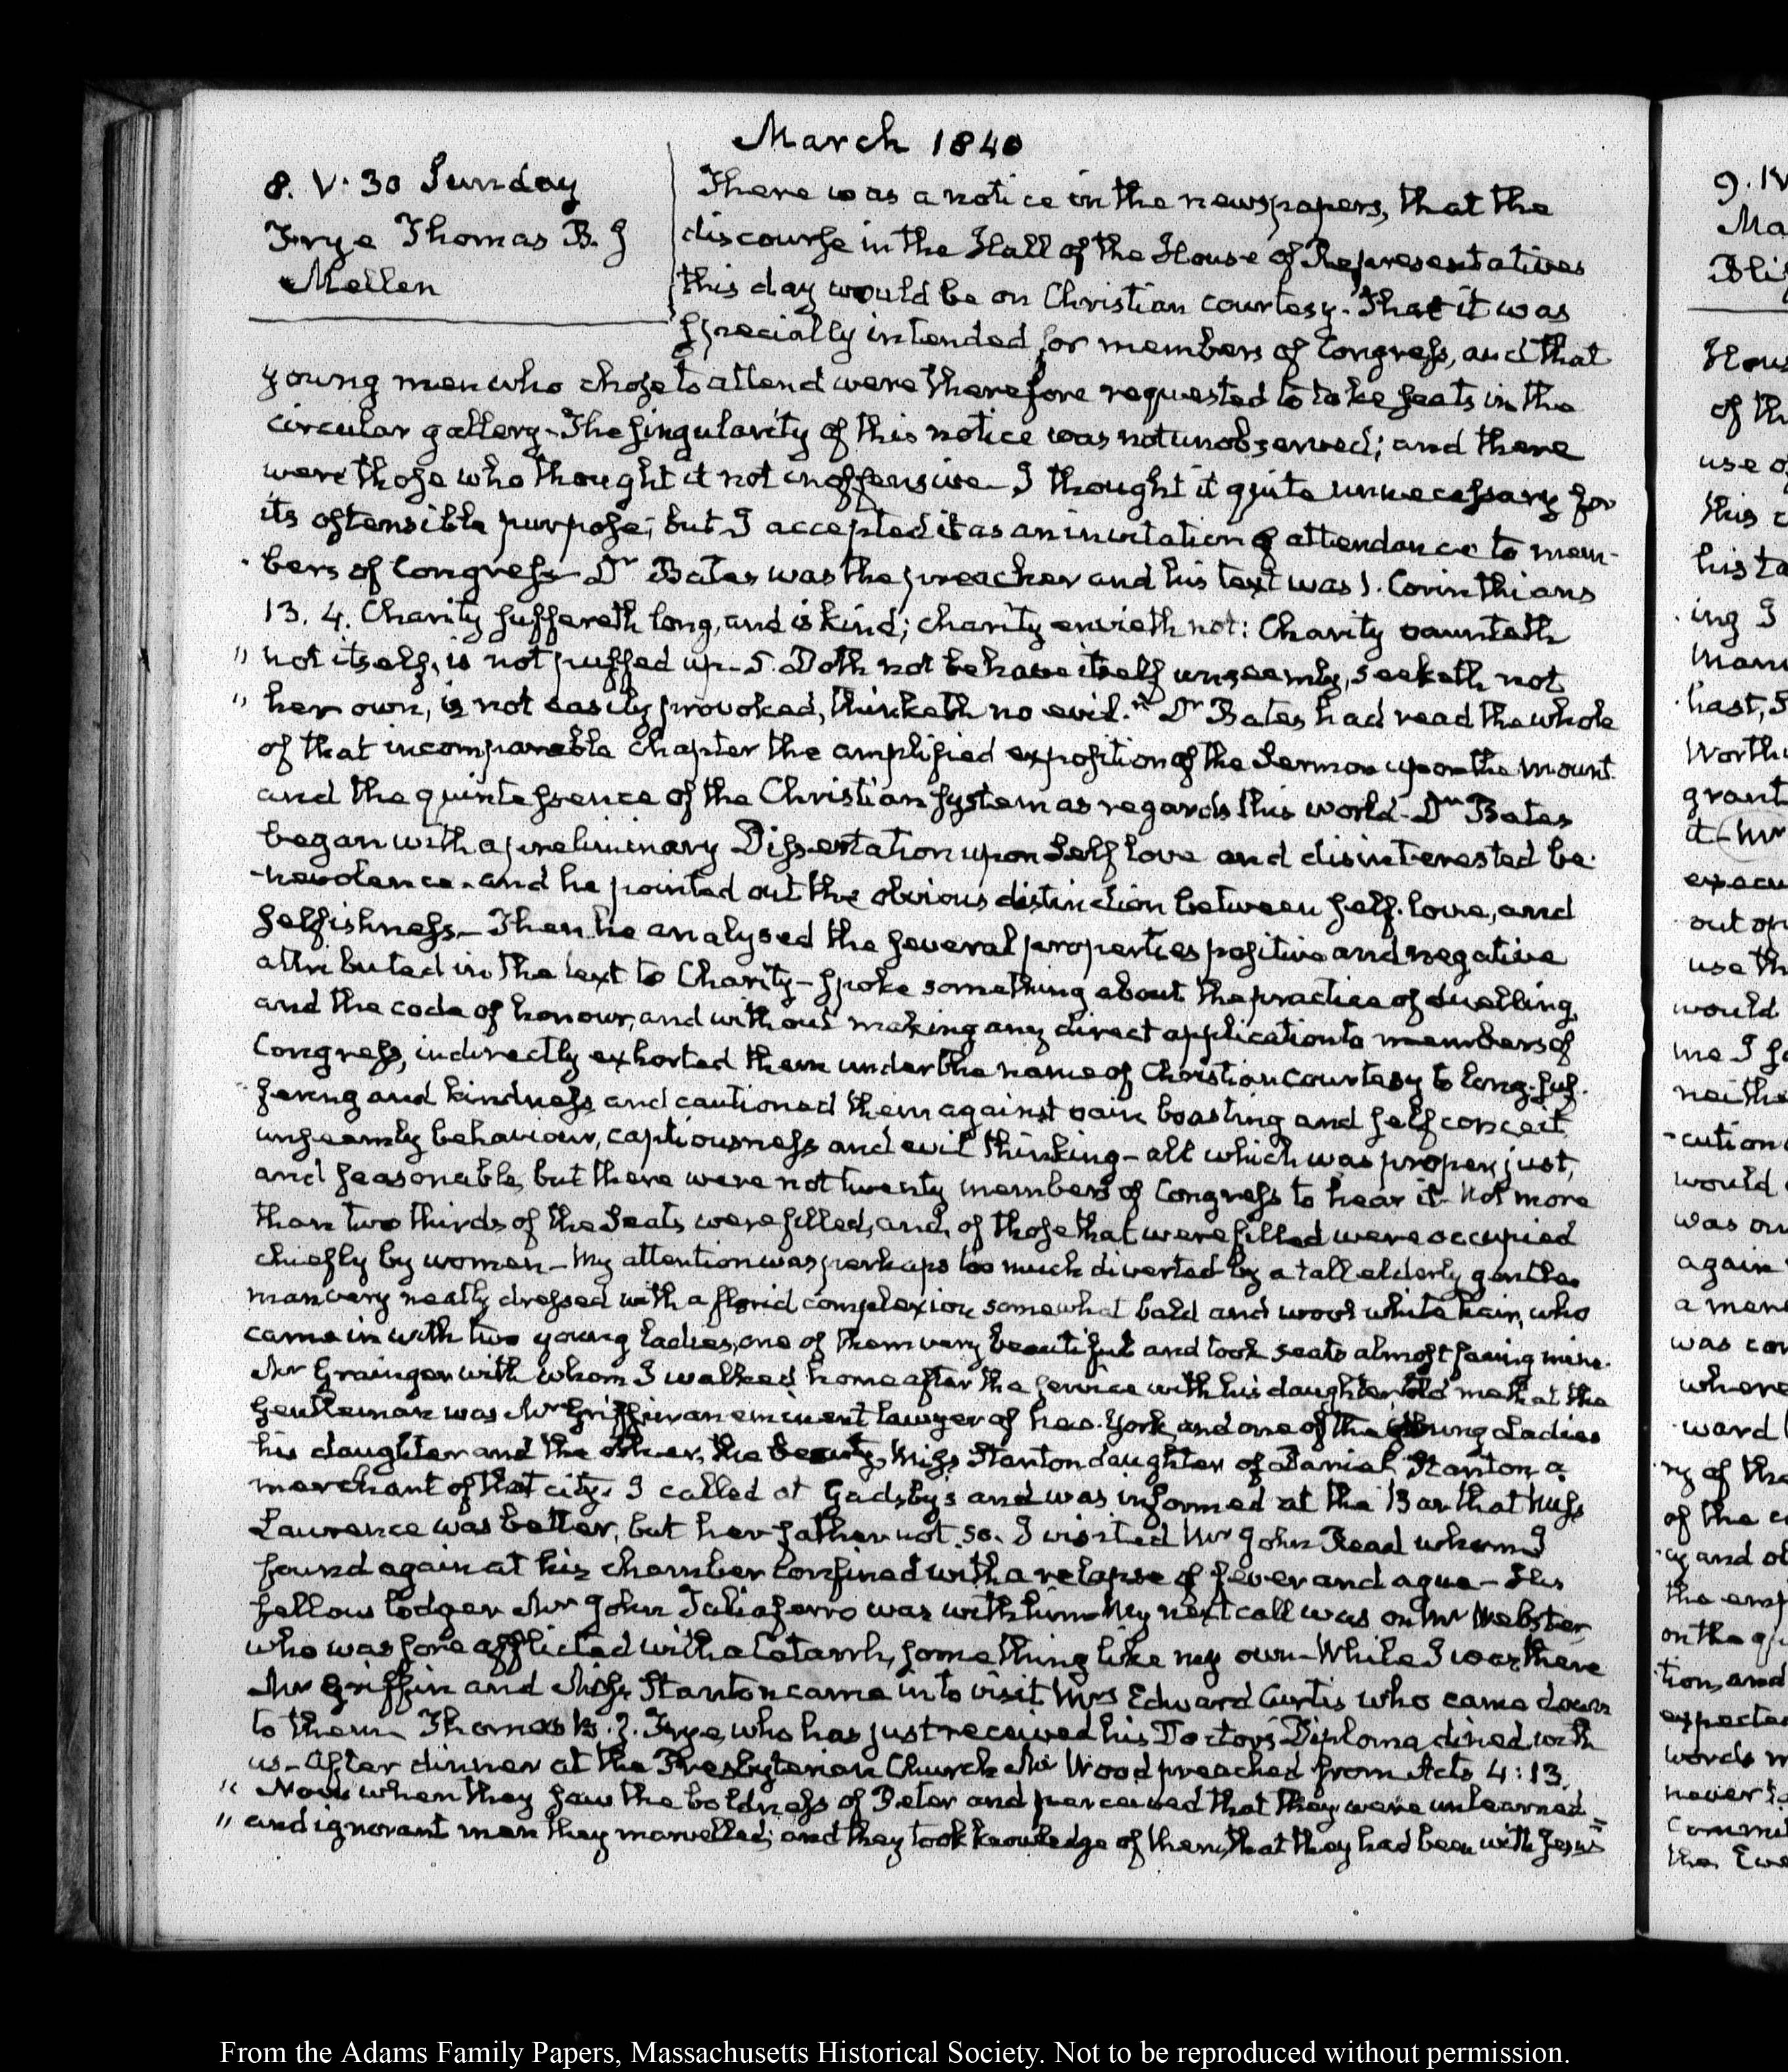 March 1840
8. V. 30 Sunday
Frye Thomas B. J
Mellen
There was a notice in the newspapers, that the
discourse in the Hall of the House of Representatives
this day would be on Christian courtesy. That it was
specially intended for members of Congress, and that
young men who chose to attend were therefore requested to take seats in the
circular gallery - The singularity of this notice was not unobserved; and there
were those who thought it not inoffensive - I thought it quite unnecessary for
its ostensible purpose; but I accepted it as an invitation of attendance to mem-
bers of Congress - Dr Bates was the preacher and his text was 1. Corinthians
13. 4. Charity suffereth long, and is kind; charity envieth not: Charity vaunteth
" not itself, is not puffed up - 5. Doth not behave itself unseemly, seeketh not
" her own, is not easily provoked, thinketh no evil." Dr Bates had read the whole
of that incomparable chapter the amplified exposition of the Sermon upon the mount
and the quintessence of the Christian system as regards this world - Dr Bates
began with a preliminary Dissertation upon Self love and disinterested be-
-nevolence - and he pointed out the obvious distinction between self-love, and
selfishness - Then he analysed the several properties positive and negative
attributed in the text to Charity - spoke something about the practice of duelling,
and the code of honour, and without making any direct application to members of
Congress, indirectly exhorted them under the name of Christian courtesy to long-suf-
fering and kindness and cautioned them against vain boasting and self conceit
unseemly behaviour, captiousness and evil thinking - all which was proper, just,
and seasonable, but there were not twenty members of Congress to hear it - Not more
than two thirds of the Seats were filled, and, of those that were filled were occupied
chiefly by women - My attention was perhaps too much diverted by a tall elderly gentle-
man very neatly dressed with a florid complexion somewhat bald and wool white hair, who
came in with two young ladies, one of them very beautiful and took seats almost facing mine.
Mr Grainger with whom I walked home after the service with his daughter, told me that the
gentleman was Mr Griffin an eminent lawyer of New-York, and one of the young Ladies
his daughter and the other, the beauty, Miss Stanton daughter of Daniel Stanton a
merchant of that city. I called at Gadsby's and was informed at the Bar that Miss
Lawrence was better, but her father not so. I visited Mr John Read whom I
found again at his chamber confined with a relapse of fever and ague - His
fellow lodger Mr John Taliaferro was with him My next call was on Mr Webster
who was sore afflicted with a Catarrh, something like my own - While I was there
Mr Griffin and Miss Stanton came in to visit Mrs Edward Curtis who came down
to them - Thomas B. J. Frye, who has just received his Doctors Diploma, dined with
us - After dinner at the Presbyterian Church Mr Wood preached from Acts 4:13.
" Now when they saw the boldness of Peter and perceived that they were unlearned
" and ignorant men they marvelled; and they took knowledge of them, that they had been with Jesus"
9. IV
Ma
Hous
of th
use o
this c
his ta
ing I
hast, S
Worth
grant
out of
use th
would
me I
cution
would
was
again
was
where
ward
of the
of the
on the
tion, and
expected
words
never
From the Adams Family Papers, Massachusetts Historical Society. Not to be reproduced without permission.